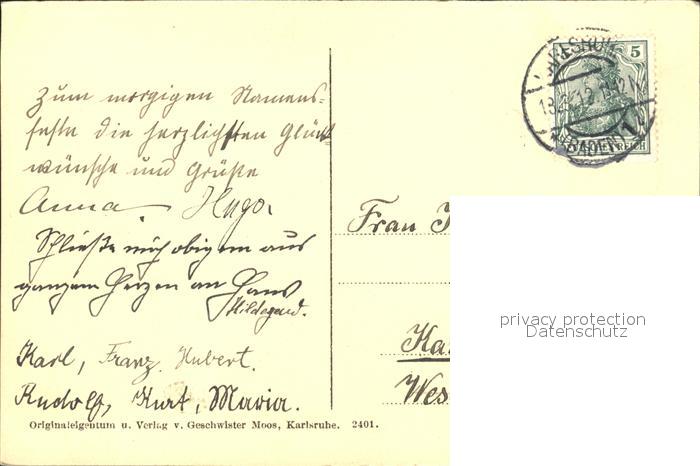 Zum morgigen Namens-
feste die herzlichsten Glück
wünsche und Grüße
Anna. Hugo.
Schließe mich obigem aus
ganzem Herzen an Hans
Hildegard.
Karl, Franz. Hubert.
Rudolf, Kurt, Maria.
Originaleigentum u. Verlag v. Geschwister Moos, Karlsruhe. 2401.
5
(BADEN) 1
Frau
Ka
Wes
privacy protection
Datenschutz